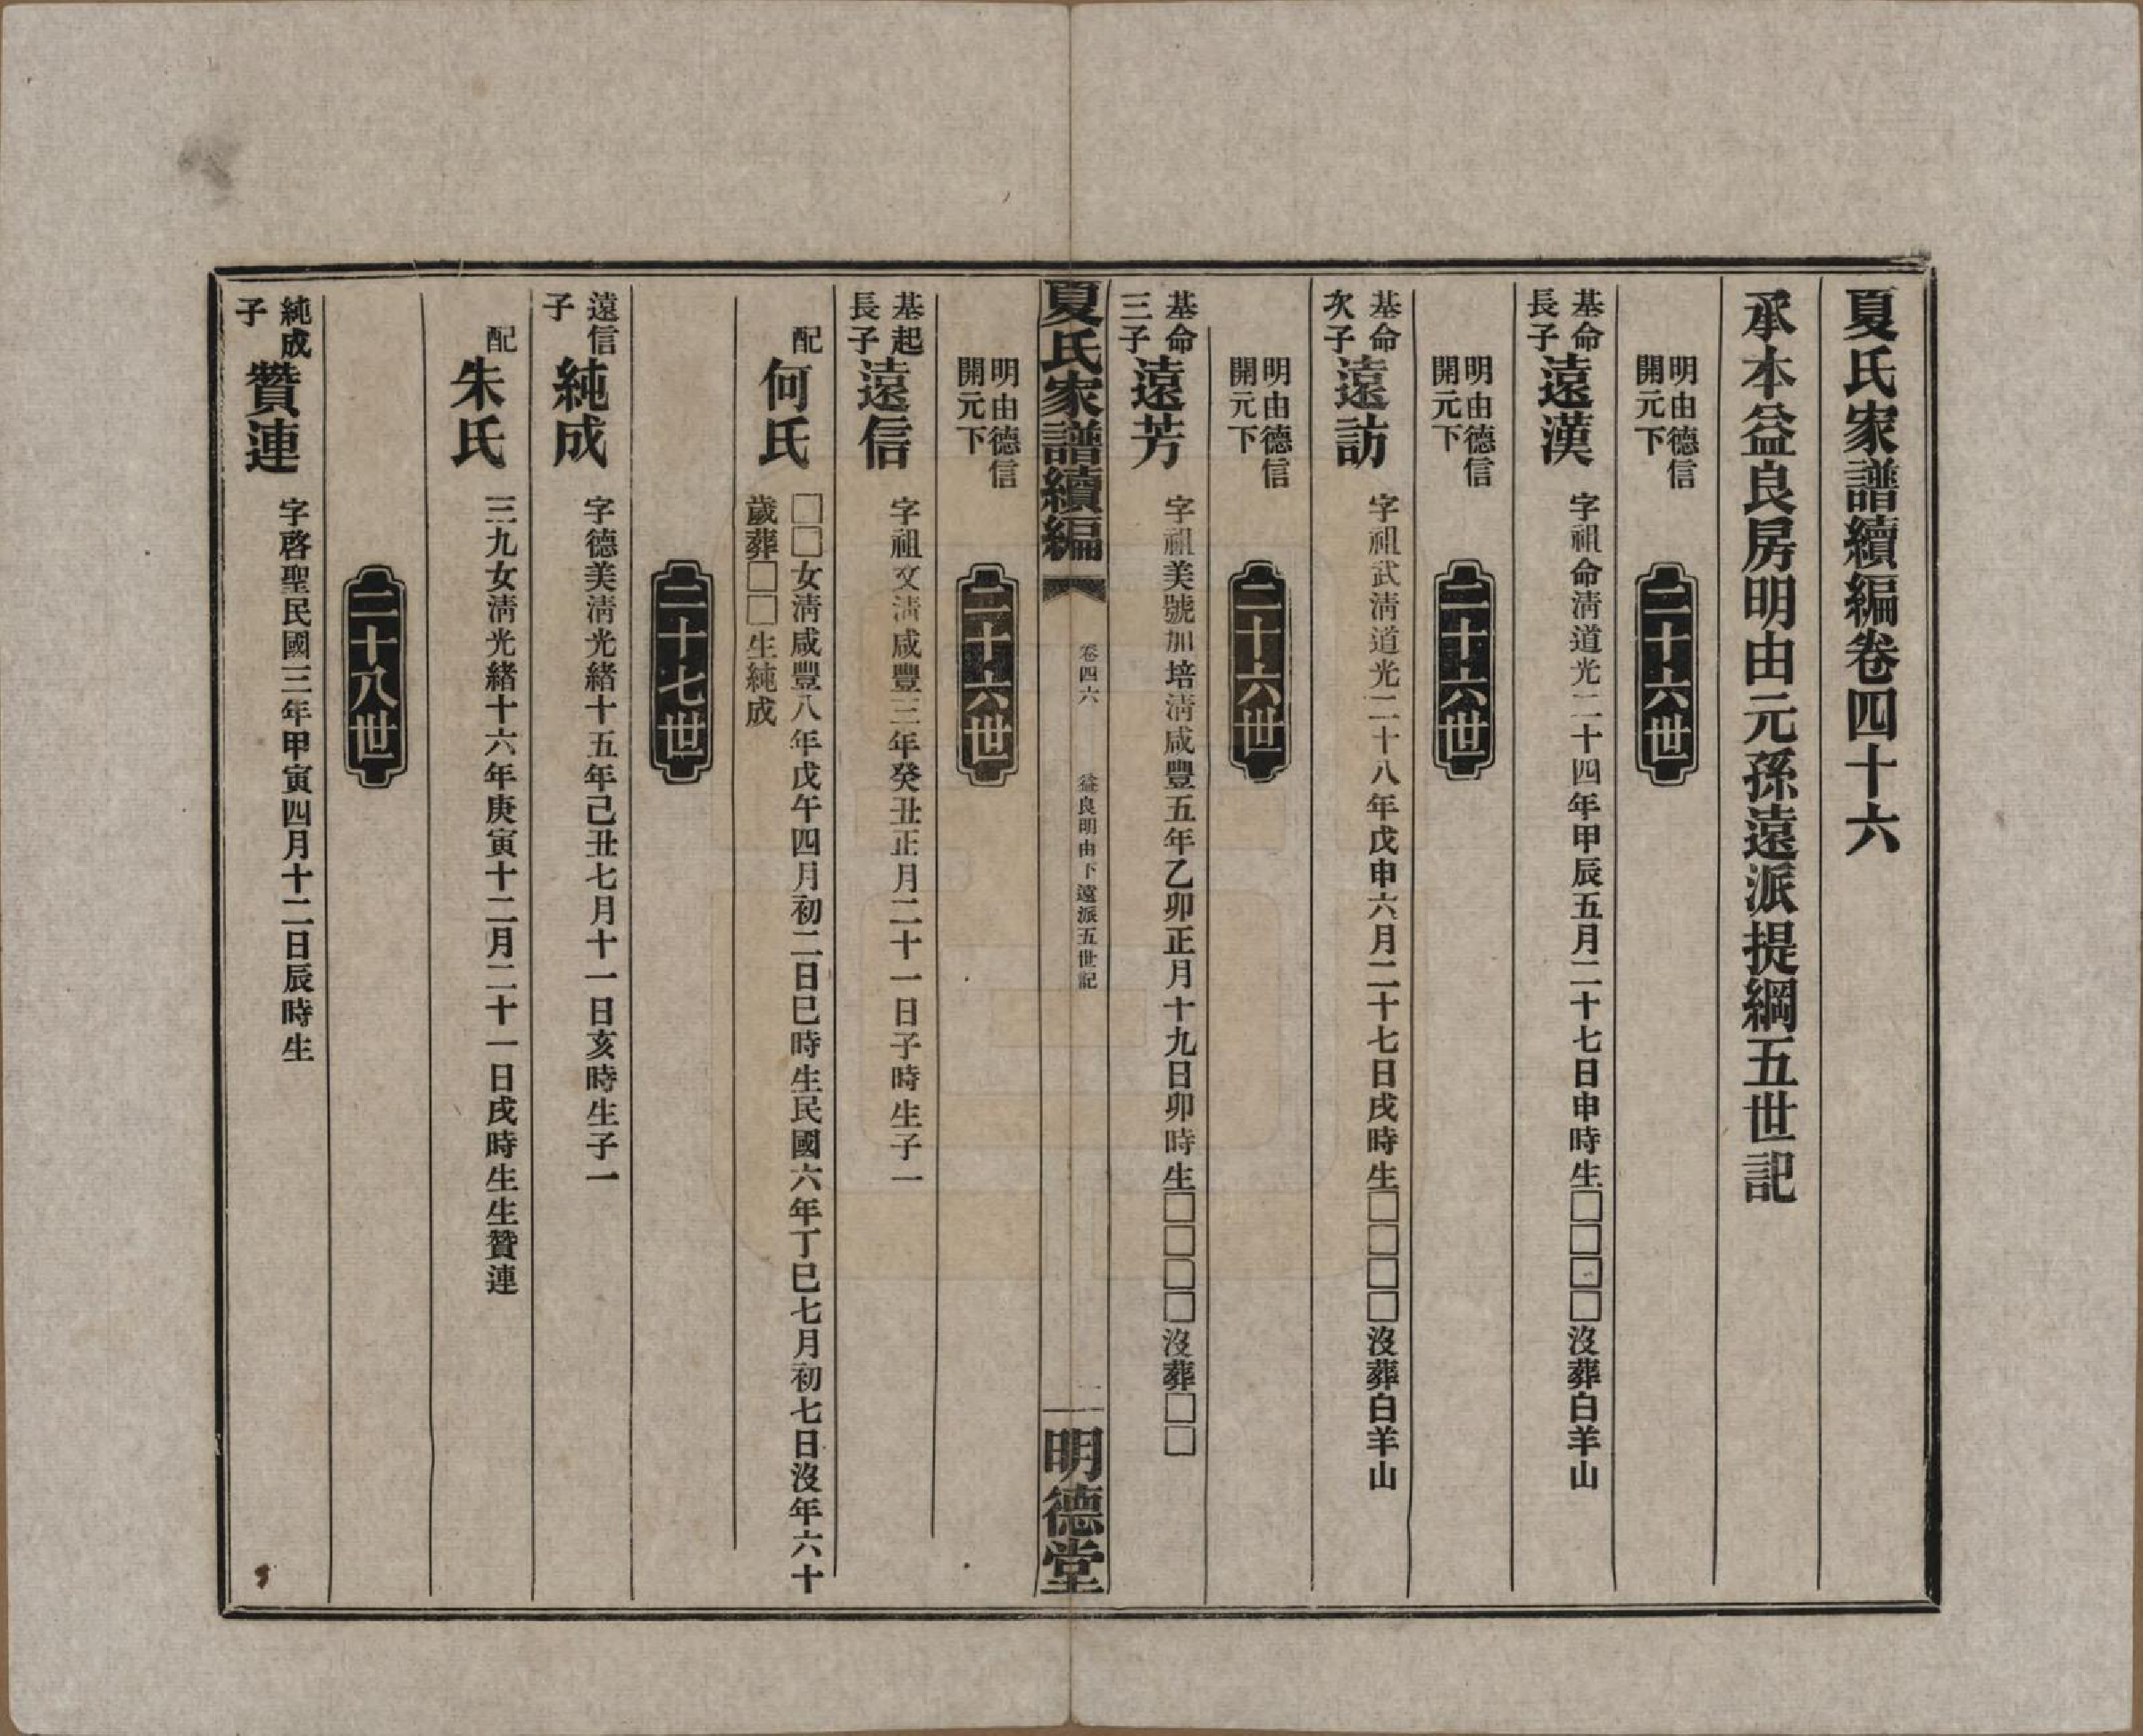 夏氏家譜續編卷四十六
承本益良房明由元孫遠派提綱五世記
明由德信
開元下
二十六世
基命
長子
遠漢
字祖命淸道光二十四年甲辰五月二十七日申時生□□□□沒葬白羊山
明由德信
開元下
二十六世
基命
次子
遠訪
字祖武淸道光二十八年戊申六月二十七日戌時生□□□□沒葬白羊山
明由德信
開元下
二十六世
基命
三子
遠芳
字祖美號加培淸咸豐五年乙卯正月十九日卯時生□□□□沒葬□□
夏氏家譜續編
卷四六
益良明由下遠派五世記
一
明德堂
明由德信
開元下
二十六世
基起
長子
遠信
字祖文淸咸豐三年癸丑正月二十一日子時生子一
配
何氏
□□女淸咸豐八年戊午四月初二日巳時生民國六年丁巳七月初七日沒年六十
歲葬□□生純成
二十七世
遠信
子
純成
字德美淸光緒十五年己丑七月十一日亥時生子一
配
朱氏
三九女淸光緒十六年庚寅十二月二十一日戌時生生贊連
二十八世
純成
子
贊連
字啓聖民國三年甲寅四月十二日辰時生